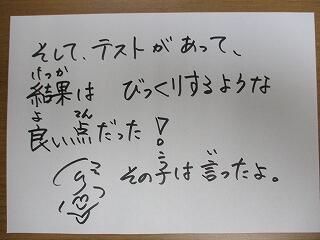 そして、テストがあって、
けっか
結果は びっくりするような
よ てん
良い点だった!
こ い
その子は言ったよ。